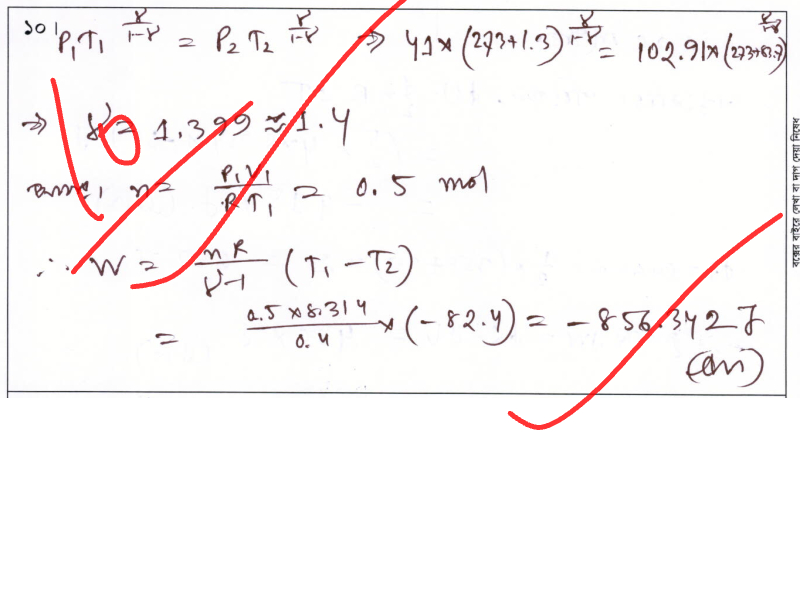 ১০। P₁T₁^(γ/(1-γ)) = P₂T₂^(γ/(1-γ)) ⇒ 41×(273+1.3)^(γ/(1-γ)) = 102.91×(273+83.7)^(γ/(1-γ))
⇒ γ = 1.399 ≈ 1.4
n = P₁V₁/RT₁ = 0.5 mol
∴ W = nR/(γ-1) (T₁ - T₂)
= (0.5×8.314)/0.4 × (-82.4) = -856.342 J
(Ans)
বক্সের বাইরে লেখা বা দাগ দেয়া নিষেধ